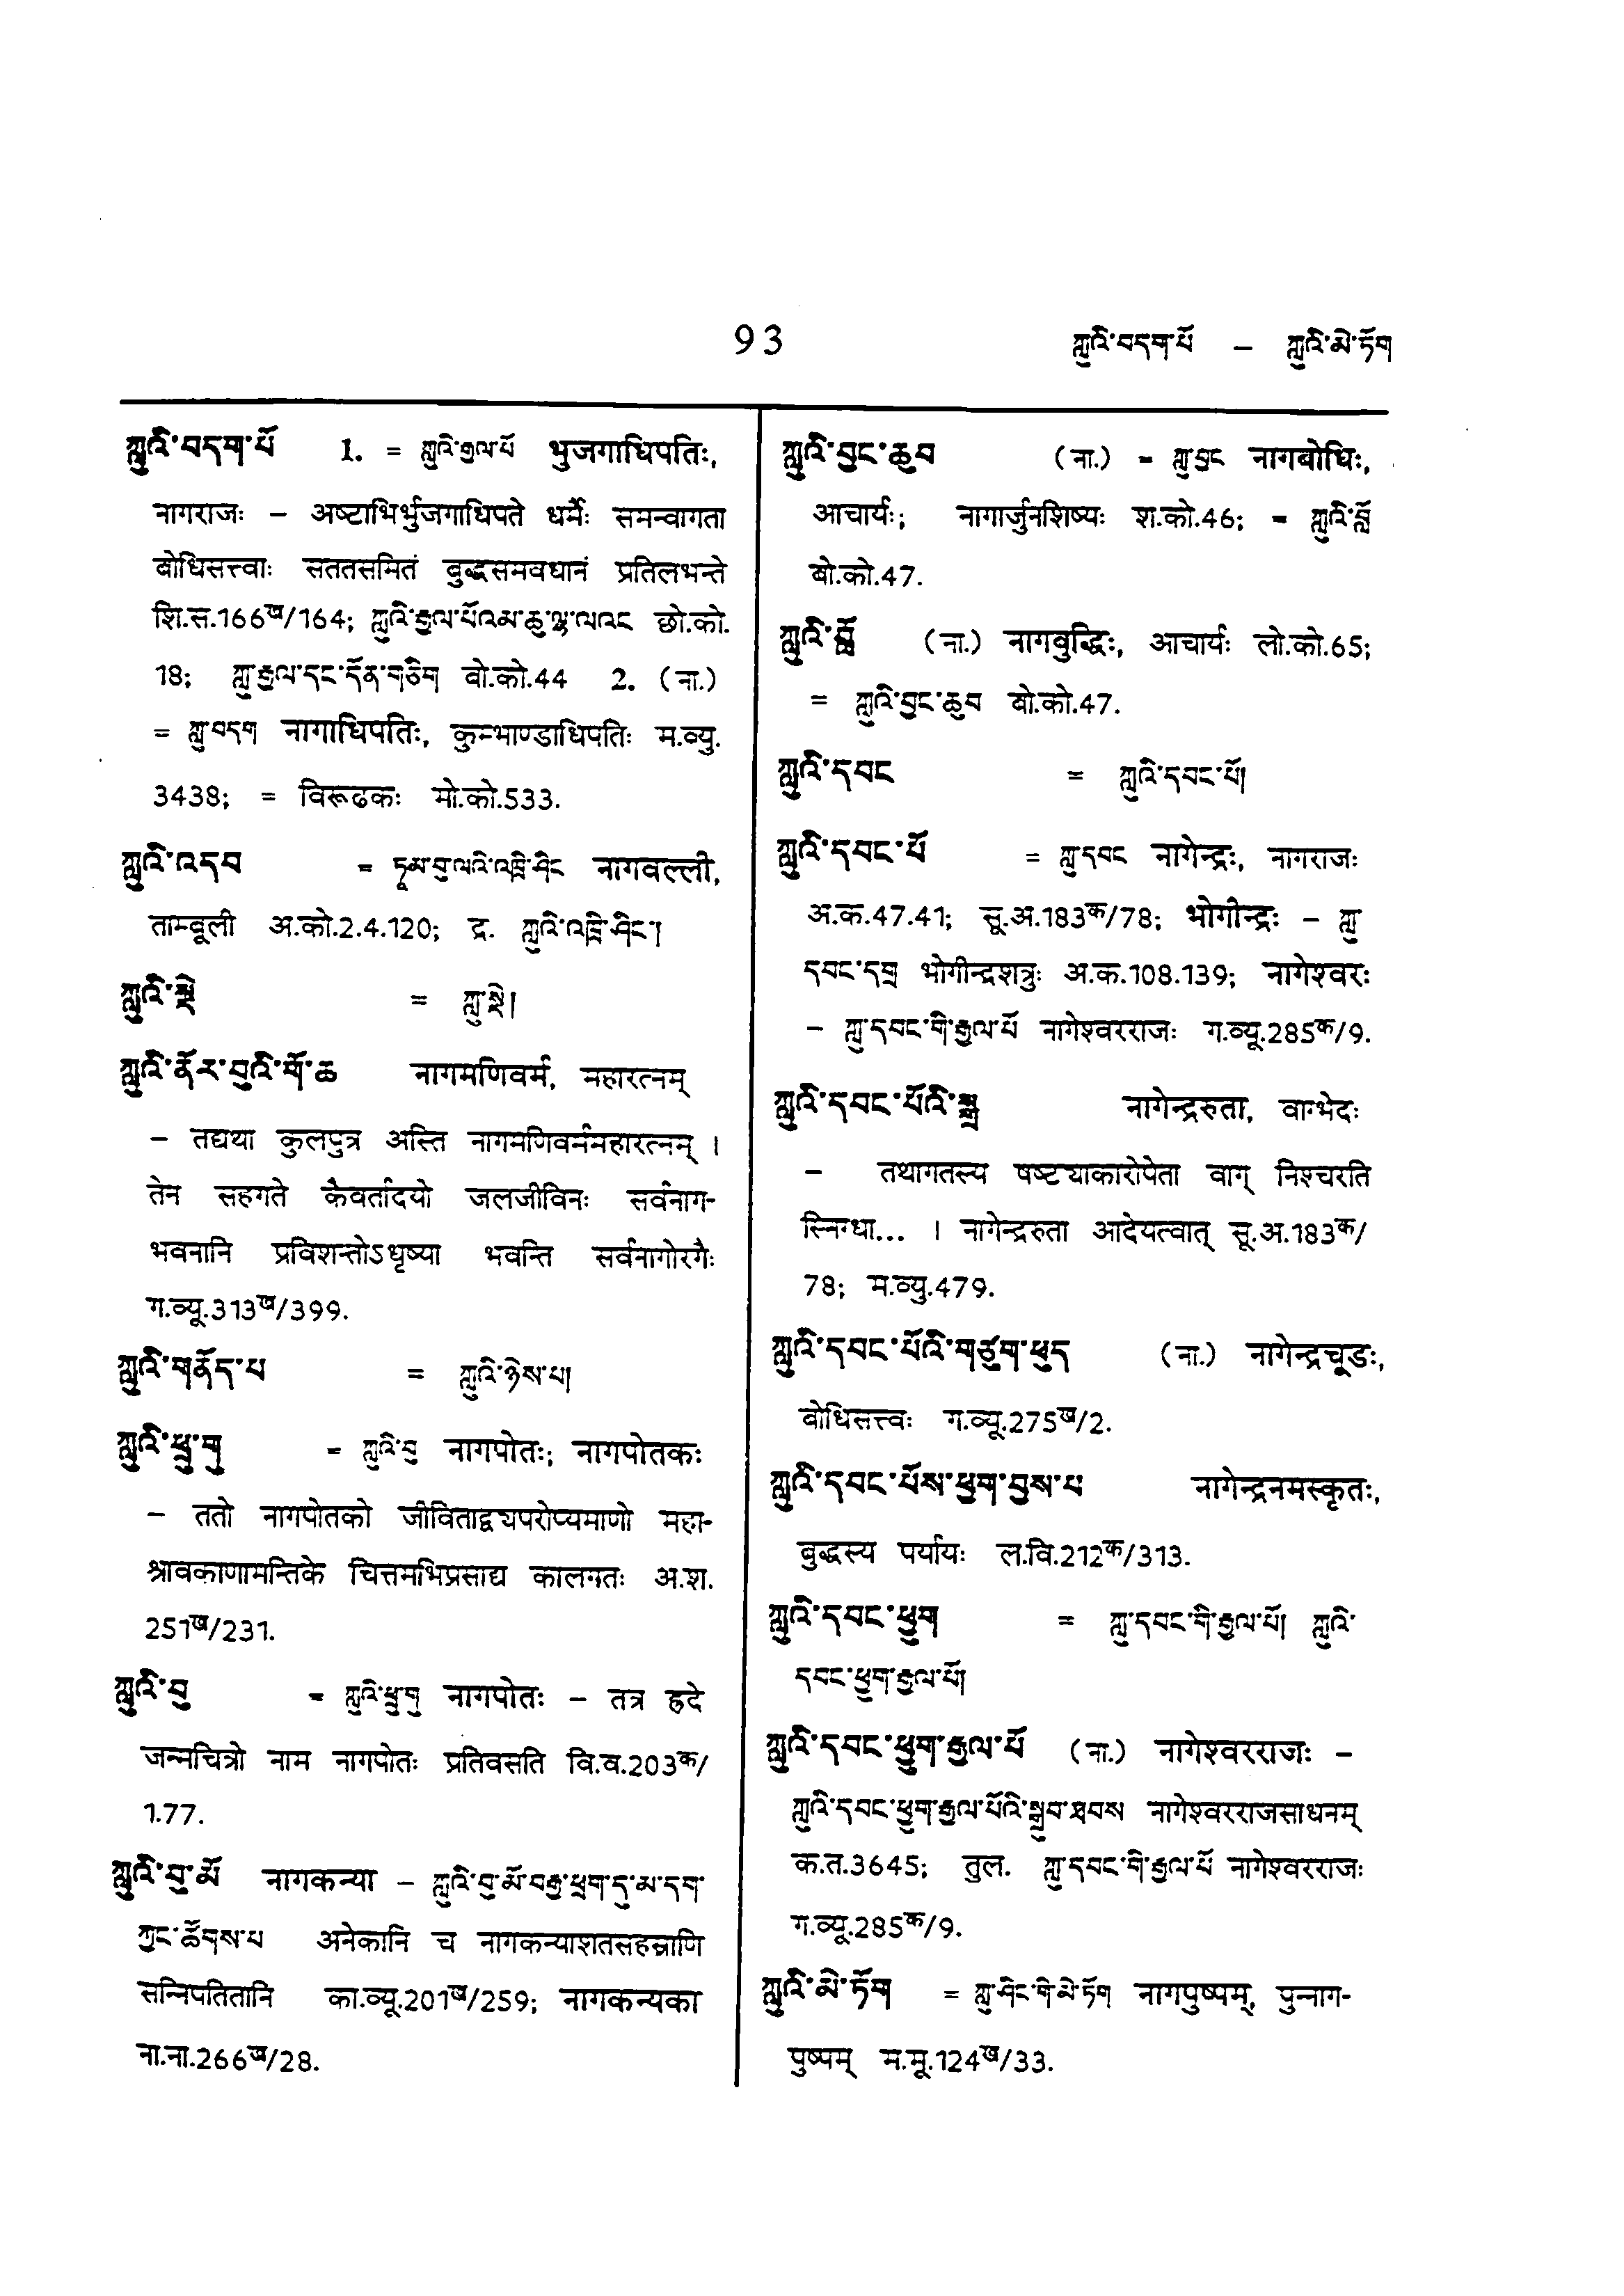 93
ཀླུའི་བདག་པོ – ཀླུའི་མེ་ཏོག
ཀླུའི་བདག་པོ 1. = ཀླུའི་རྒྱལ་པོ भुजगाधिपतिः,
नागराजः – अष्टाभिर्भुजगाधिपते धर्मैः समन्वागता
बोधिसत्त्वाः सततसमितं बुद्धसमवधानं प्रतिलभन्ते
शि.स.166ख/164; ཀླུའི་རྒྱལ་པོའམ་ཆུ་ལྷ་ལའང छो.को.
18; ཀླུ་རྒྱལ་དང་དོན་གཅིག बो.को.44 2. (ना.)
= ཀླུ་བདག नागाधिपतिः, कुम्भाण्डाधिपतिः म.व्यु.
3438; = विरूढकः मो.को.533.
ཀླུའི་འདབ = ཏཱམ་བུ་ལའི་འཁྲི་ཤིང नागवल्ली,
ताम्बूली अ.को.2.4.120; द्र. ཀླུའི་འཁྲི་ཤིང་།
ཀླུའི་སྡེ = ཀླུ་སྡེ།
ཀླུའི་ནོར་བུའི་གོ་ཆ नागमणिवर्म, महारत्नम्
– तद्यथा कुलपुत्र अस्ति नागमणिवर्ममहारत्नम् ।
तेन सहगते कैवर्तादयो जलजीविनः सर्वनाग-
भवनानि प्रविशन्तोऽधृष्या भवन्ति सर्वनागोरगैः
ग.व्यू.313ख/399.
ཀླུའི་གནོད་པ = ཀླུའི་ཉེས་པ།
ཀླུའི་ཕྲུ་གུ = ཀླུའི་བུ नागपोतः; नागपोतकः
– ततो नागपोतको जीविताद्व्यपरोप्यमाणो महा-
श्रावकाणामन्तिके चित्तमभिप्रसाद्य कालगतः अ.श.
251ख/231.
ཀླུའི་བུ = ཀླུའི་ཕྲུ་གུ नागपोतः – तत्र ह्रदे
जन्मचित्रो नाम नागपोतः प्रतिवसति वि.व.203क/
1.77.
ཀླུའི་བུ་མོ नागकन्या – ཀླུའི་བུ་མོ་བརྒྱ་ཕྲག་དུ་མ་དག་
ཀྱང་ཚོགས་པ अनेकानि च नागकन्याशतसहस्राणि
सन्निपतितानि का.व्यू.201ख/259; नागकन्यका
ना.ना.266ख/28.
ཀླུའི་བྱང་ཆུབ (ना.) = ཀླུ་བྱང नागबोधिः,
आचार्यः; नागार्जुनशिष्यः श.को.46; = ཀླུའི་བློ
बो.को.47.
ཀླུའི་བློ (ना.) नागबुद्धिः, आचार्यः लो.को.65;
= ཀླུའི་བྱང་ཆུབ बो.को.47.
ཀླུའི་དབང = ཀླུའི་དབང་པོ།
ཀླུའི་དབང་པོ = ཀླུ་དབང नागेन्द्रः, नागराजः
अ.क.47.41; सू.अ.183क/78; भोगीन्द्रः – ཀླུ
དབང་དགྲ भोगीन्द्रशत्रुः अ.क.108.139; नागेश्वरः
– ཀླུ་དབང་གི་རྒྱལ་པོ नागेश्वरराजः ग.व्यू.285क/9.
ཀླུའི་དབང་པོའི་སྒྲ नागेन्द्ररुता, वाग्भेदः
– तथागतस्य षष्ट्याकारोपेता वाग् निश्चरति
स्निग्धा... । नागेन्द्ररुता आदेयत्वात् सू.अ.183क/
78; म.व्यु.479.
ཀླུའི་དབང་པོའི་གཙུག་ཕུད (ना.) नागेन्द्रचूडः,
बोधिसत्त्वः ग.व्यू.275ख/2.
ཀླུའི་དབང་པོས་ཕྱག་བྱས་པ नागेन्द्रनमस्कृतः,
बुद्धस्य पर्यायः ल.वि.212क/313.
ཀླུའི་དབང་ཕྱུག = ཀླུ་དབང་གི་རྒྱལ་པོ། ཀླུའི་
དབང་ཕྱུག་རྒྱལ་པོ།
ཀླུའི་དབང་ཕྱུག་རྒྱལ་པོ (ना.) नागेश्वरराजः –
ཀླུའི་དབང་ཕྱུག་རྒྱལ་པོའི་སྒྲུབ་ཐབས नागेश्वरराजसाधनम्
क.त.3645; तुल. ཀླུ་དབང་གི་རྒྱལ་པོ नागेश्वरराजः
ग.व्यू.285क/9.
ཀླུའི་མེ་ཏོག = ཀླུ་ཤིང་གི་མེ་ཏོག नागपुष्पम्, पुन्नाग-
पुष्पम् म.मू.124ख/33.